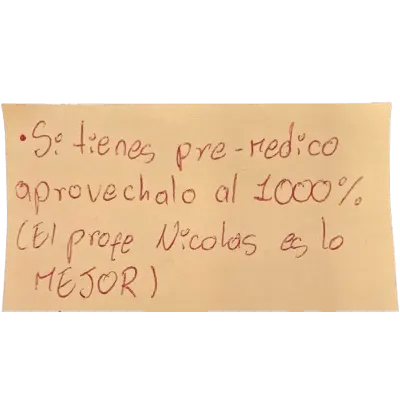 • Si tienes pre-medico
aprovechalo al 1000%
(El profe Nicolas es lo
MEJOR)